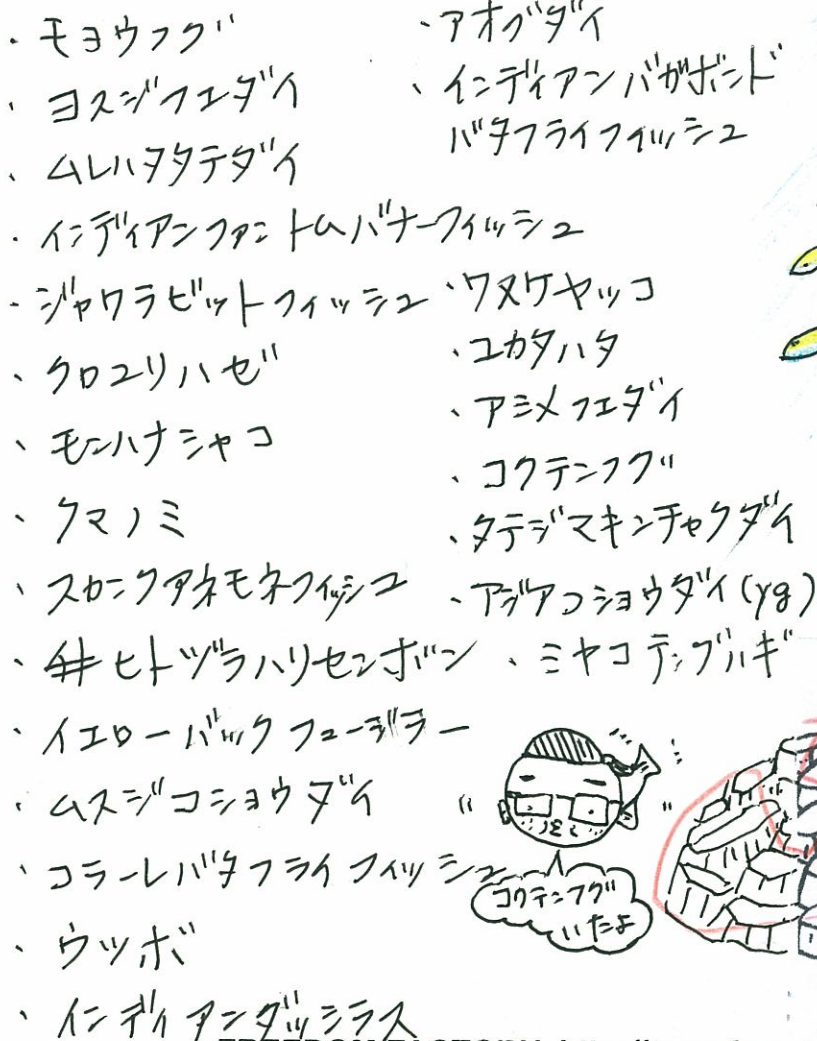 ・モヨウフグ
・ヨスジフエダイ
・ムレハタタテダイ
・インディアンファントムバナーフィッシュ
・ジャワラビットフィッシュ
・クロユリハゼ
・モンハナシャコ
・クマノミ
・スカンクアネモネフィッシュ
・ヒトヅラハリセンボン
・イエローバックフュージラー
・ムスジコショウダイ
・コラーレバタフライフィッシュ
・ウツボ
・インディアンダッシラス
・アオブダイ
・インディアンバガボンド
バタフライフィッシュ
・ワヌケヤッコ
・ユカタハタ
・アミメフエダイ
・コクテンフグ
・タテジマキンチャクダイ
・アジアコショウダイ(yg)
・ミヤコテングハギ
コクテンフグ
いたよ